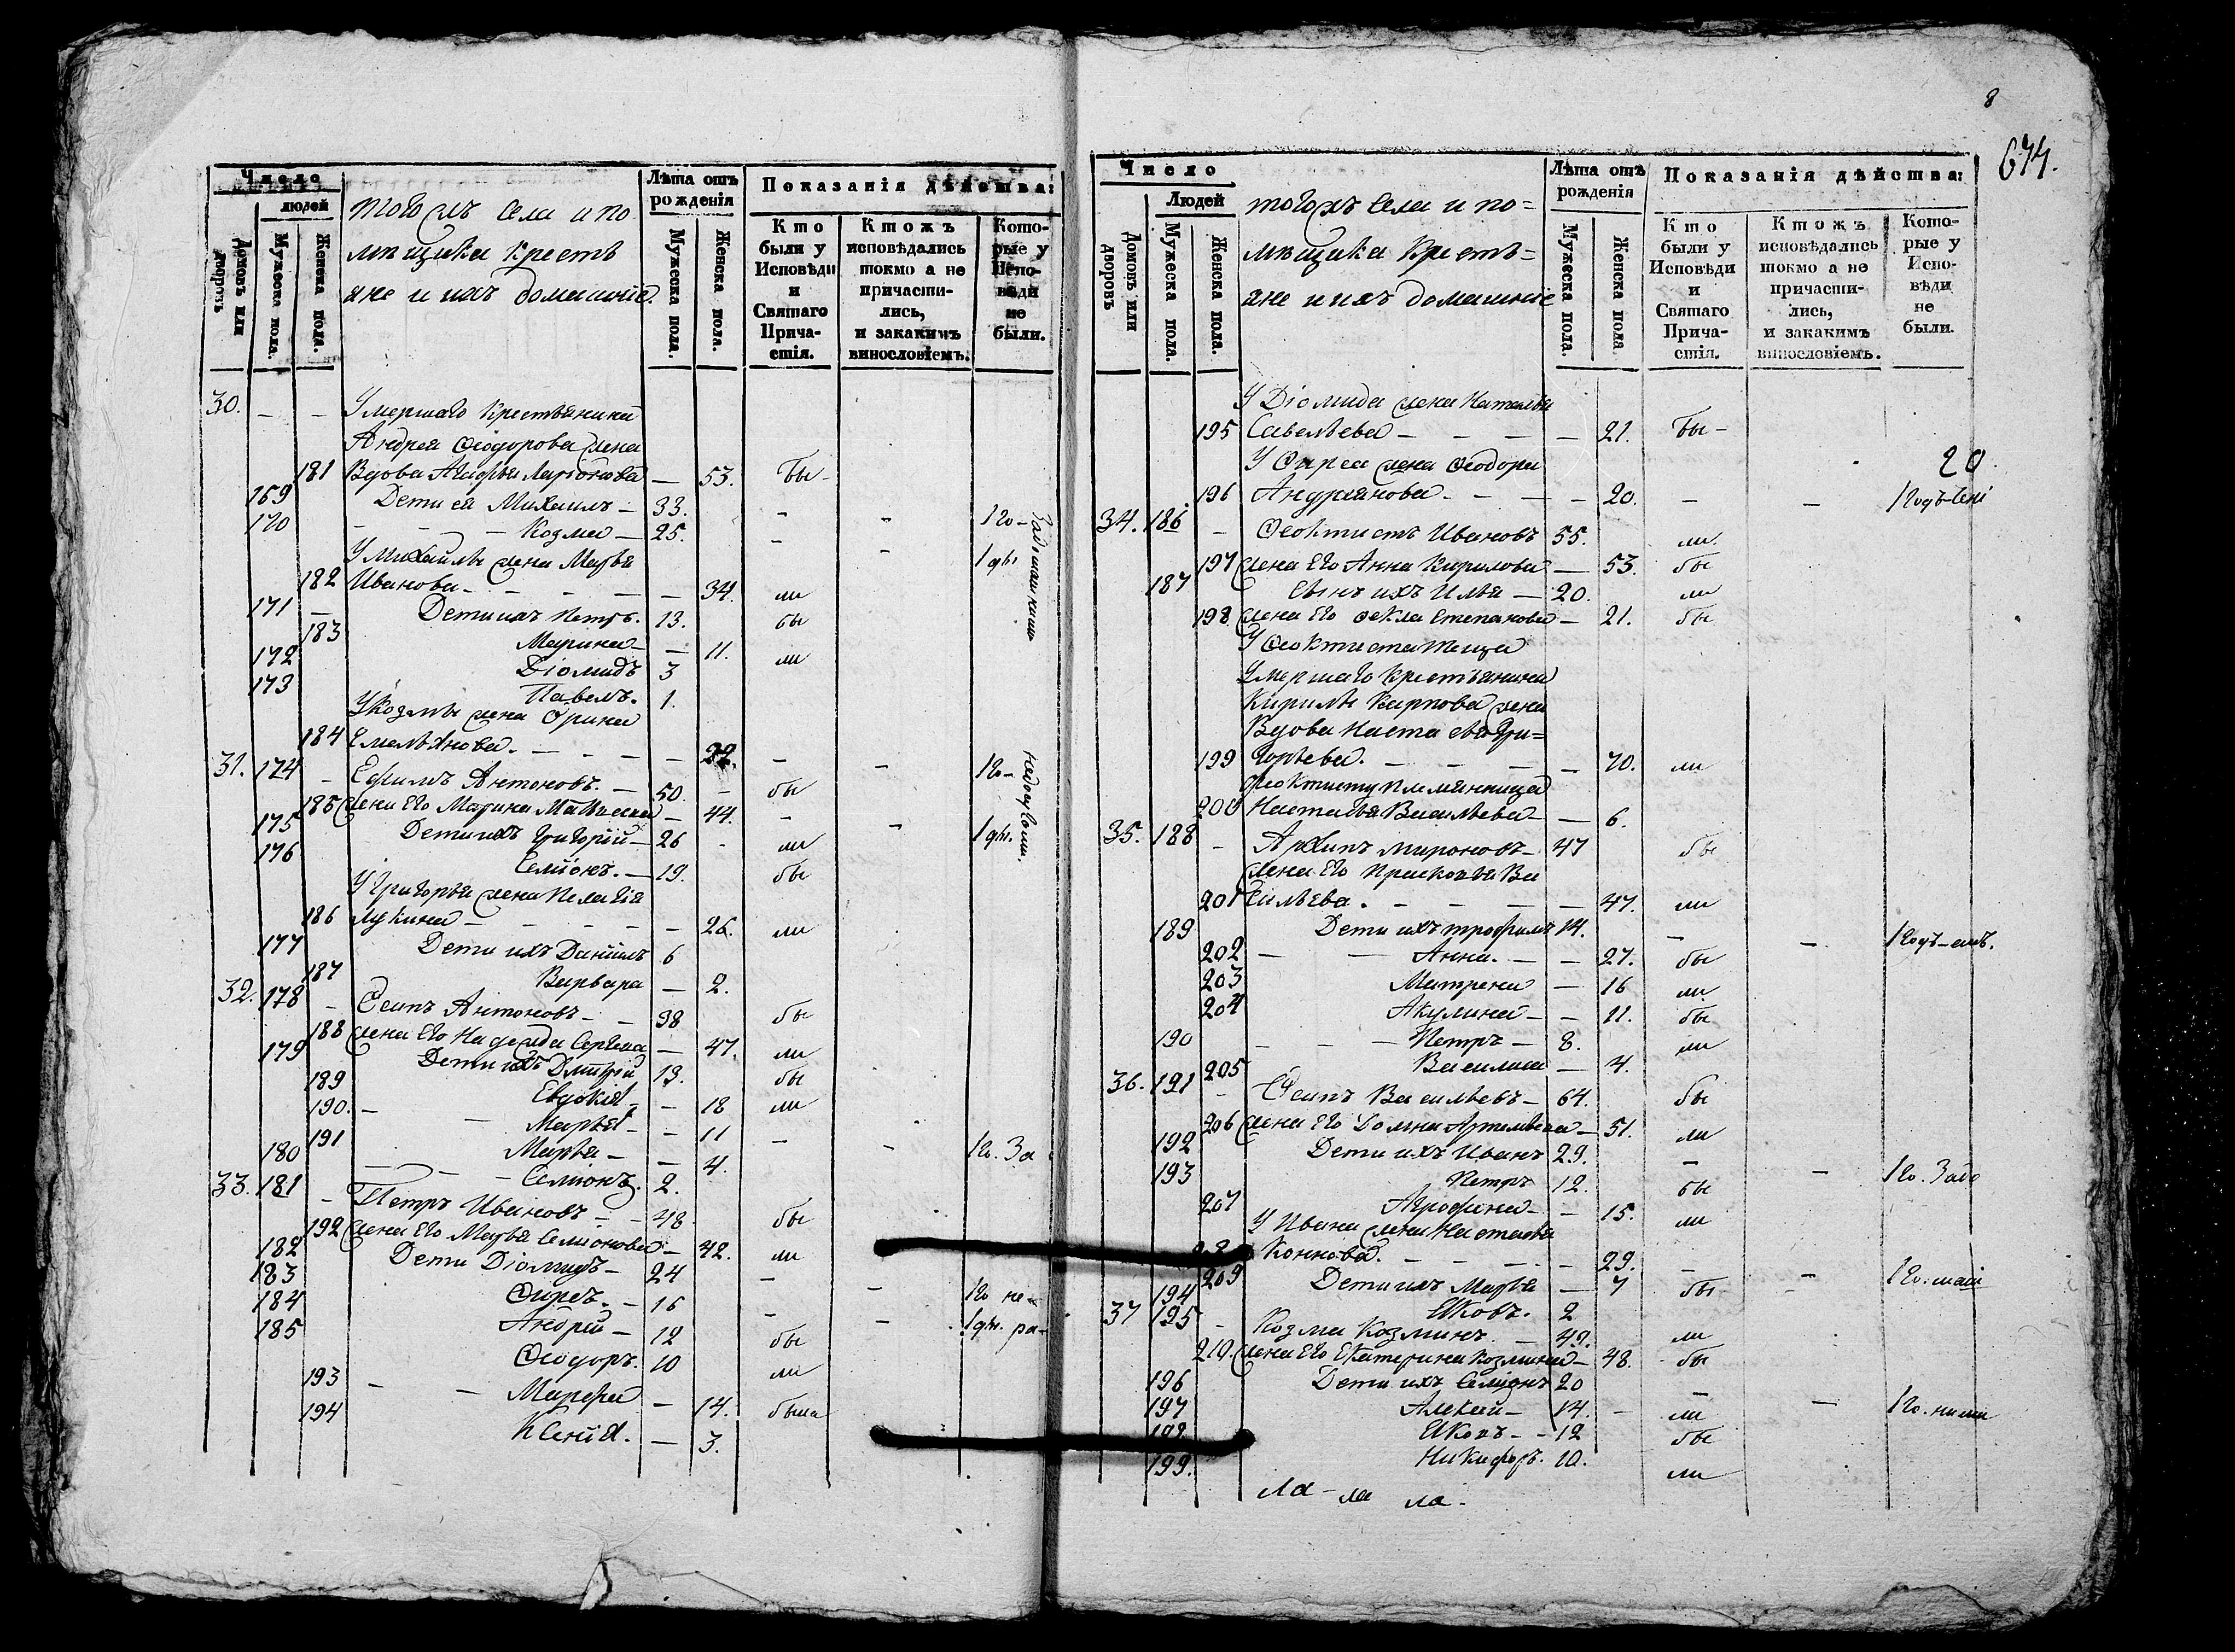 8
674.
Число
людей
Домовъ или дворовъ
Мужеска пола.
Женска пола.
тогожъ села и по
мѣщика кресть
яне и ихъ домашніе
Лѣта отъ рожденія
Мужеска пола.
Женска пола.
Показанія дѣйства:
Кто были у Исповѣди и Святаго Причастія.
Ктожъ исповѣдались токмо а не причастились, и закакимъ винословіемъ.
Которые у Исповѣди не были.
30. — — Умершаго крестьянина
Андрея Ѳіодорова жена
181 Вдова Агафья Ларіонова — 53. бы —
169 Дети ея Михаилъ — 33. — — 1 го —
170 — Козма — 25. — — 1 дм
У Михаилы жена Марья
182 Иванова — — — — 34. ли
171 — Дети ихъ Петръ. 13. бы
183 Марина — — 11. ли
172 Діомидъ 3
173 Павелъ. 1.
У Козмы жена Орина
184 Емельянова. — — — — 22. — — 1 го —
31. 174 — Ефимъ Антоновъ. — 50. — бы
185 жена Его Марина — 44. — — 1 дм.
175 Дети ихъ Григорій — 26 — ли
176 Семіонъ. — 19. бы
У Григорья жена Пелагія
186 Лукина — — — — 26. ли
177 Дети ихъ Даніилъ 6
187 Варвара — 2.
32. 178 — Осипъ Антоновъ — — 38 бы
188 жена Его Надежда Сергеева — 47. ли
179 Дети ихъ Дмитрій 13. бы
189 Евдокія — — 18 ли
190. — — Марья — — 11 — — 1 го. За
191 Марья — — 4.
180 — — Семіонъ. 2.
33. 181 — Петръ Ивановъ — — 48 бы
192 жена Его Марья Семіонова — 42. ли
182 Дети Діомидъ — 24 — — 1 го не
183 Спиръ. — 16 — — 1 дм. ра
184 Андрей — 12 бы
185 Ѳіодоръ. 10 ли
193 — — Марфа — 14. была
194 Ксенія. — 3.
Число
Людей
Домовъ или дворовъ
Мужеска пола.
Женска пола.
тогожъ села и по=
мѣщика кресть=
яне и ихъ домашніе
Лѣта отъ рожденія
Мужеска пола.
Женска пола
Показанія дѣйства:
Кто были у Исповѣди и Святаго Причастія.
Ктожъ исповѣдались токмо а не причастились, и закакимъ винословіемъ.
Которые у Исповѣди не были.
У Діомида жена Наталья
195 Савельева — — — — 21. бы —
20
жена Ѳеодора
196 Андреянова — — — — 20. — — 1 годъ
34. 186 — Ѳеоктистъ Ивановъ 55. ли
197 жена Его Анна Кирилова — 53. бы
187 Сынъ ихъ Илья — 20. ли
198 жена Его Ѳекла Степанова — 21. бы
У Ѳеоктиста теща
Умершаго крестьянина
Кирилы Карпова жена
Вдова Настасья Гри=
199 горьева. — — — — 70. ли
Ѳеоктисту племянница
200 Настасья Васильева — — 6.
35. 188 — Архипъ Мироновъ — 47 бы
жена Его Прасковья Ва
201 сильева. — — — — 47. ли
189 Дети ихъ Трофимъ 14. — — 1 годъ
202 — — Анна. — — 27. бы
203 Матрена — 16 ли
204 Акулина — — 11. бы
190 — — — Петръ — 8. ли
205 Василиса — 4.
36. 191 — Осипъ Васильевъ — 64. бы
206 жена Его Домна Артемьева — 51. ли
192 Дети ихъ Иванъ 29. — — 1 го. За
193 Петръ 12. бы
207 Агрофина — — 15. ли
У Ивана жена Настасья
Коннова. — — — — 29. — — 1 го.
209 Дети ихъ Марья — 7 бы —
194 Яковъ. 2
37 195 — Козма Козминъ — 49. ли
210. жена Его Екатерина Козмина — 48. бы
196 Дети ихъ Семіонъ 20 — — 1 го.
197 Алексей — 14. — ли
Яковъ — — 12 бы
199. Никифоръ. 10. ли
ла — ла ла —